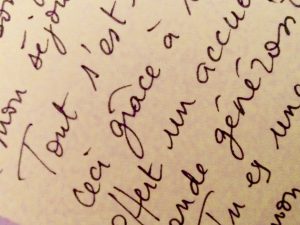 mon séjou
Tout s'est
Ceci grâce à
offert un accue
ande généros
Tu es une
mon